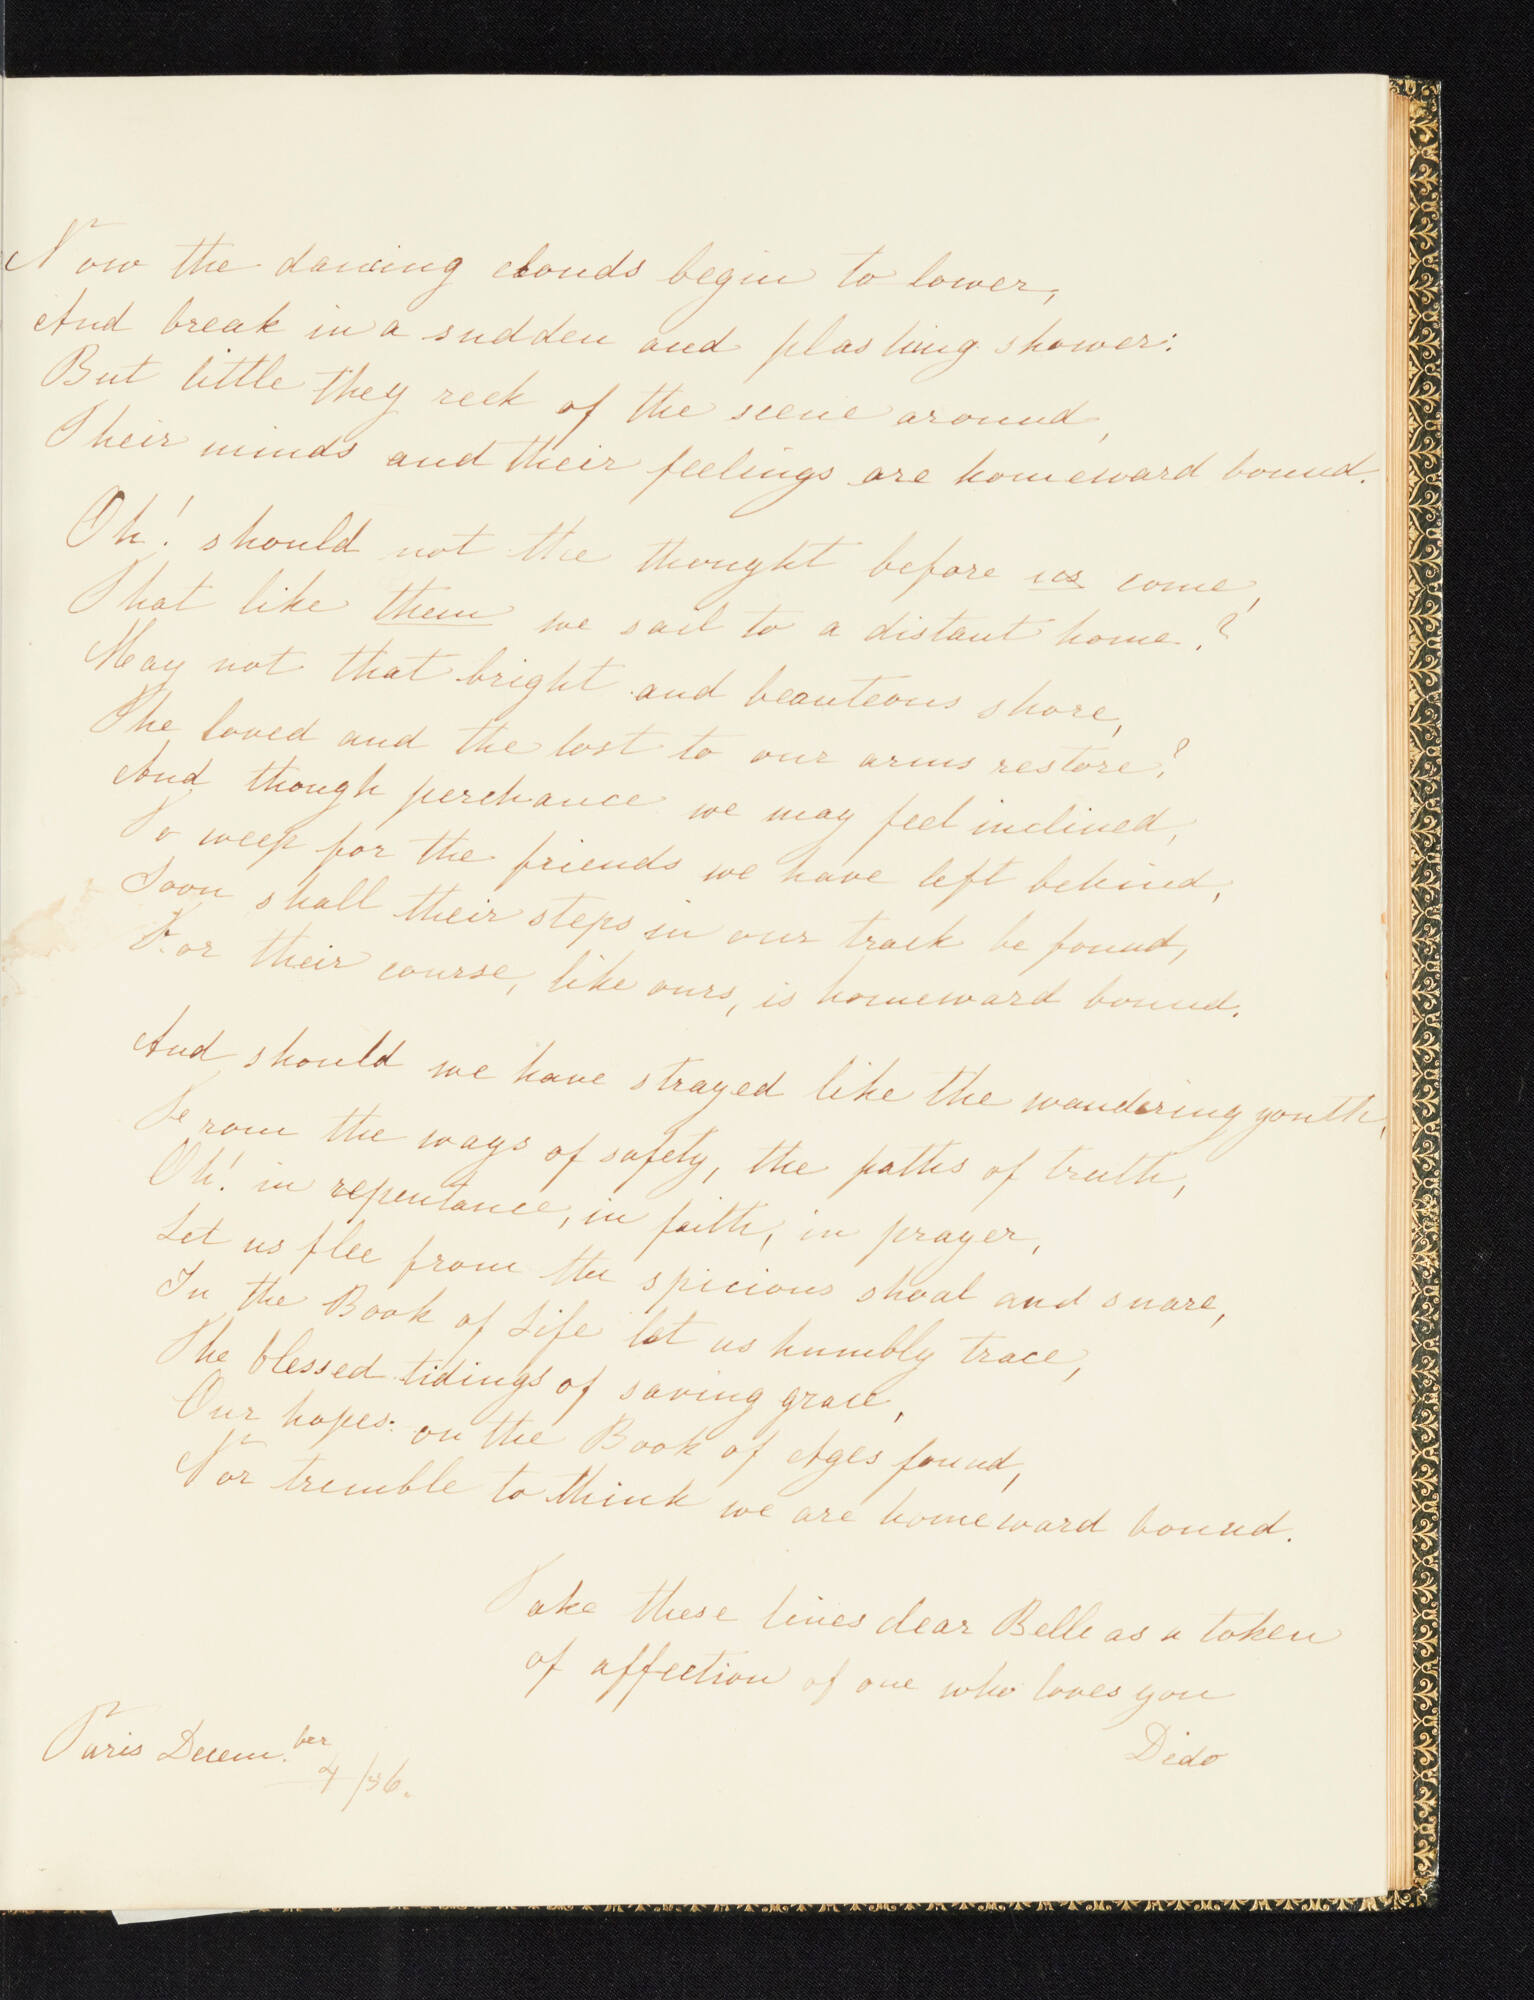 Now the dancing clouds begin to lower,
And break in a sudden and plashing shower:
But little they reck of the scene around,
Their minds and their feelings are homeward bound.
Oh! should not the thought before us come,
That like them we sail to a distant home.?
May not that bright and beauteous shore,
The loved and the lost to our arms restore?
And though perchance we may feel inclined,
To weep for the friends we have left behind,
Soon shall their steps in our track be found,
For their course, like ours, is homeward bound.
And should we have strayed like the wandering youth,
From the ways of safety, the paths of truth,
Oh! in repentance, in faith, in prayer,
Let us flee from the spicious shoal and snare,
In the Book of Life let us humbly trace,
The blessed tidings of saving grace,
Our hopes on the Book of Ages found,
Nor tremble to think we are homeward bound.
Take these lines dear Belle as a token
of affection of one who loves you
Dido
Paris Decem.ber
4/56.